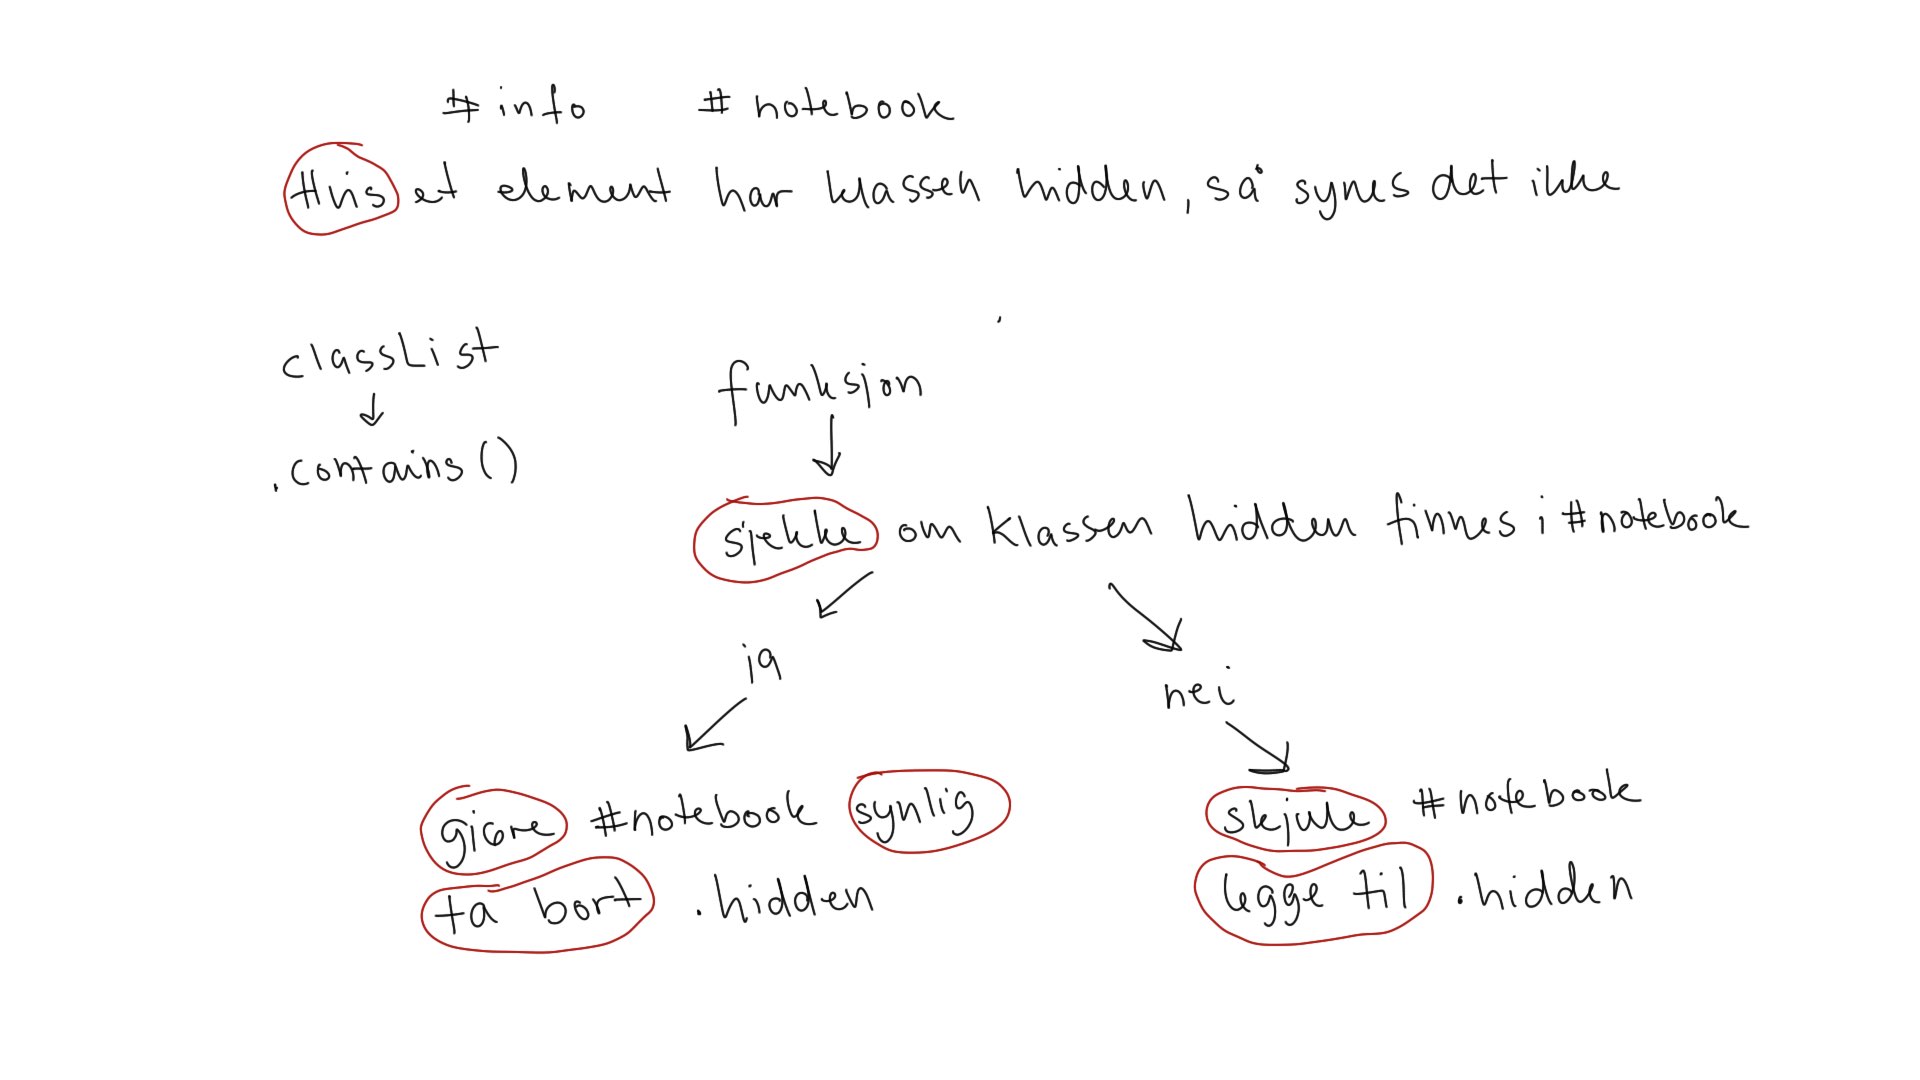 #info #notebook
Hvis et element har klassen hidden, så synes det ikke
classList
.contains()
funksjon
sjekke om klassen hidden finnes i #notebook
ja
nei
gjøre #notebook synlig
ta bort .hidden
skjule #notebook
legge til .hidden